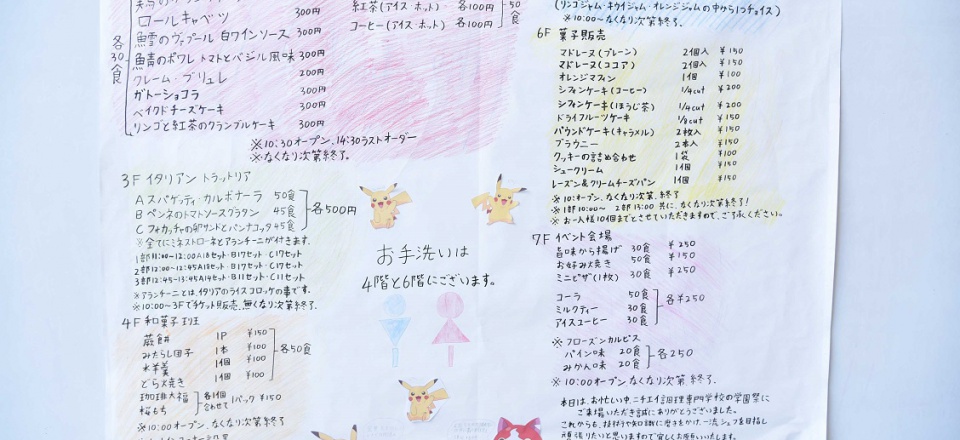 ロールキャベツ 300円
魚雪のヴァプール 白ワインソース 300円
魚青のポワレ トマトとバジル風味 300円
クレーム・ブリュレ 200円
ガトーショコラ 300円
ベイクドチーズケーキ 300円
リンゴと紅茶のクランブルケーキ 300円
各30食
※10:30オープン、14:30ラストオーダー
※なくなり次第終了。
紅茶(アイス・ホット) 各100円
コーヒー(アイス・ホット) 各100円
50食
3F イタリアン トラットリア
A スパゲッティ・カルボナーラ 50食
B ペンネのトマトソースグラタン 45食
C フォカッチャの卵サンドとパンナコッタ 45食
各500円
※全てにミネストローネとアランチーニが付きます。
1部11:00~12:00 A18セット・B17セット・C17セット
2部12:00~12:45 A18セット・B17セット・C17セット
3部12:45~13:45 A14セット・B11セット・C11セット
※アランチーニとは、イタリアのライスコロッケの事です。
※10:00~3Fでチケット販売、無くなり次第終了。
4F 和菓子 班
蕨餅 1P ¥150
みたらし団子 1本 ¥100
水羊羹 1個 ¥100
どら焼き 1個 ¥100
各50食
珈琲大福
桜もち
各1個合わせて 1パック ¥150
※10:00オープン、なくなり次第終了
お手洗いは
4階と6階にございます。
(リンゴジャム・キウイジャム・オレンジジャムの中から1つチョイス)
※10:00~なくなり次第終了。
6F 菓子販売
マドレーヌ(プレーン) 2個入 ¥150
マドレーヌ(ココア) 2個入 ¥150
オレンジマフィン 1個 ¥100
シフォンケーキ(コーヒー) 1/4cut ¥200
シフォンケーキ(ほうじ茶) 1/4cut ¥200
ドライフルーツケーキ 1/8cut ¥150
パウンドケーキ(キャラメル) 2枚入 ¥150
ブラウニー 2本入 ¥150
クッキーの詰め合わせ 1袋 ¥100
シュークリーム 1個 ¥150
レーズン&クリームチーズパン 1個 ¥150
※10:オープン、なくなり次第、終了
※1部10:00~ 2部13:00 共に、なくなり次第終了!
※お一人様10個までとさせていただきますので、ご了承ください。
7F イベント会場
旨味から揚げ 30食 ¥250
お好み焼き 50食 ¥150
ミニピザ(1枚) 30食 ¥250
コーラ 50食
ミルクティー 30食
アイスコーヒー 30食
各¥250
※フローズンカルピス
パイン味 20食
みかん味 20食
各250
※10:00オープンなくなり次第 終了。
本日は、お忙しい中、ニチエイ調理専門学校の学園祭に
ご来場いただき誠にありがとうございました。
これからも、技術や知識に磨きをかけ、一流シェフを目指し
頑張りたいと思いますので宜しくお願いいたします。